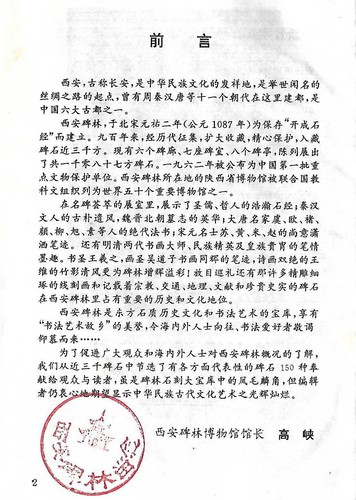 前言
西安，古称长安，是中华民族文化的发祥地，是举世闻名的
丝绸之路的起点，曾有周秦汉唐等十一个朝代在这里建都，是
中国六大古都之一。
西安碑林，于北宋元祐二年(公元1087年)为保存“开成石
经”而建立。九百年来，经历代征集，扩大收藏，精心保护，入藏
碑石近三千方。现有六个碑廊、七座碑室、八个碑亭，陈列展出
了共一千零八十七方碑石。一九六二年被公布为中国第一批重
点文物保护单位。西安碑林所在地的陕西省博物馆被联合国教
科文组织列为世界五十个重要博物馆之一。
在名碑荟萃的展室里，展示了圣儒、哲人的浩瀚石经；秦汉
文人的古朴遗风，魏晋北朝墓志的英华；大唐名家虞、欧、褚、
颜、柳、旭、素等人的绝代法书；宋元名士苏、黄、米、赵的尚意潇
洒笔迹。还有明清两代书画大师、民族精英及皇族贵胄的笔情
墨趣。书圣王羲之，画圣吴道子书画同辉的笔迹，诗画双绝的王
维的竹影清风更为碑林增辉溢彩！故目巡礼还有那许多精雕细
琢的线刻画和记载着宗教、交通、地理、文献和珍贵史实的碑石
在西安碑林里占有重要的历史和文化地位。
西安碑林是东方石质历史文化和书法艺术的宝库，享有
“书法艺术故乡”的美誉，令海内外人士向往，书法爱好者敬谒
仰慕而来……
为了促进广大观众和海内外人士对西安碑林概况的了解，
我们从近三千碑石中节选了有各方面代表性的碑石150种奉
献给观众与读者，虽是碑林石刻大宝库中的凤毛麟角，但编辑
者仍衷心地期望显示中华民族古代文化艺术之光辉灿烂。
西安碑林博物馆馆长 高峡
2